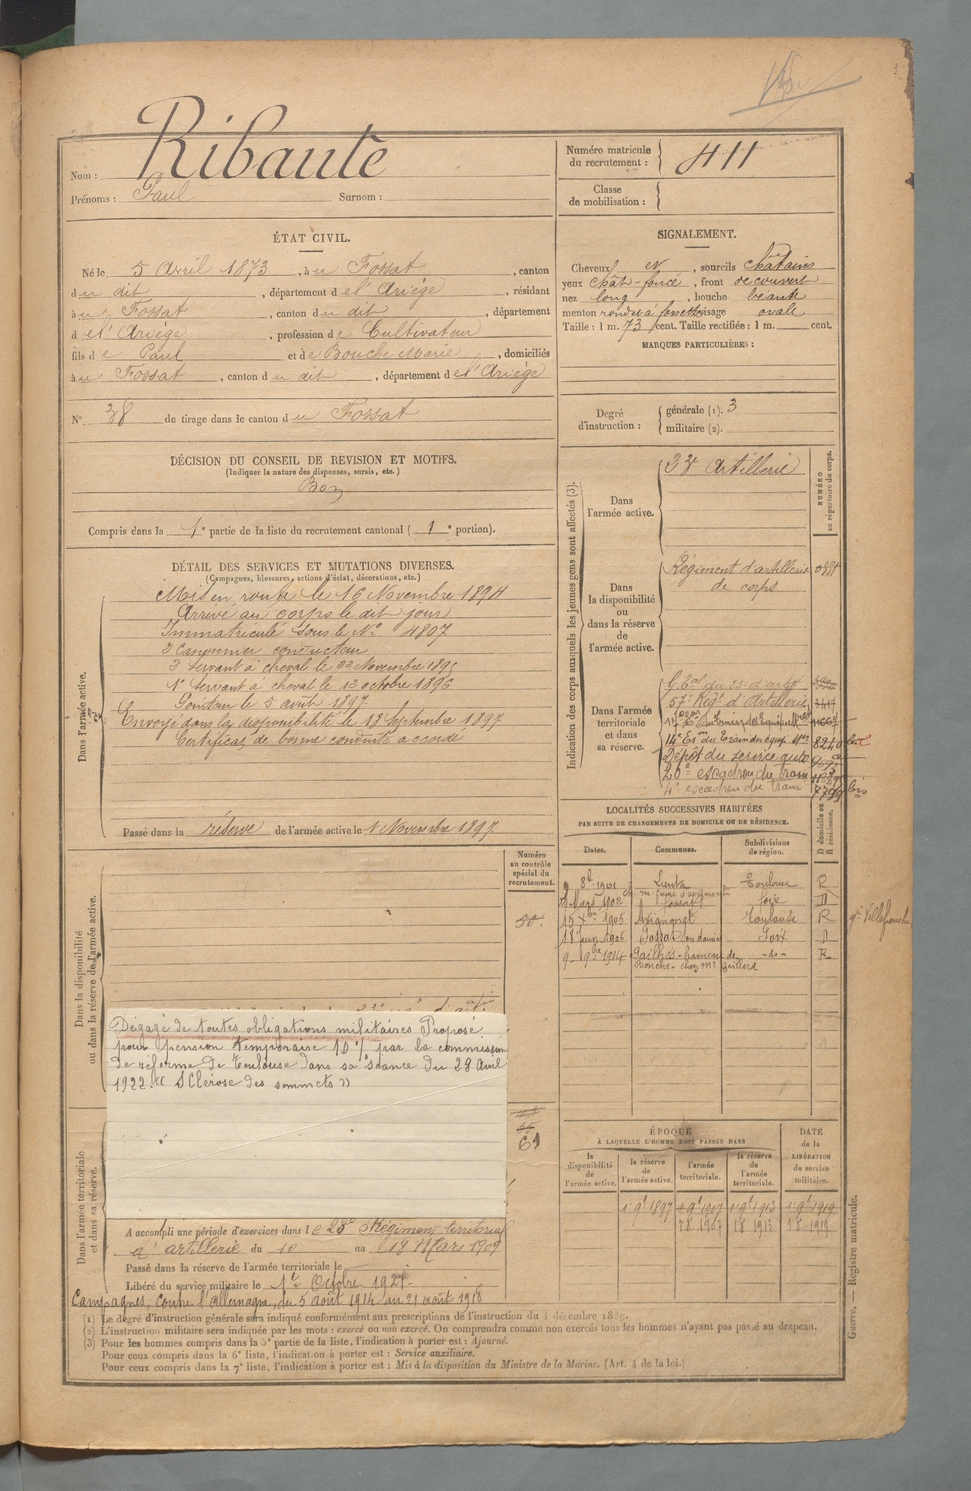 Nom : Ribaute
Prénoms : Paul Surnom :
Numéro matricule du recrutement : 411
Classe de mobilisation :
ÉTAT CIVIL.
Né le 5 Avril 1873, à u Fossat, canton
d u dit, département d e l'Ariège, résidant
à u Fossat, canton d u dit, département
d e l'Ariège, profession d e Cultivateur
fils d e Paul et d e Bouche Marie, domiciliés
à u Fossat, canton d u dit, département d e l'Ariège
N° 38 de tirage dans le canton d u Fossat
SIGNALEMENT.
Cheveux et, sourcils châtains
yeux chât-foncé, front découvert
nez long, bouche béante
menton rond à fossette visage ovale
Taille : 1 m. 73 cent. Taille rectifiée : 1 m. cent.
MARQUES PARTICULIÈRES :
Degré d'instruction : générale (1). 3
militaire (2).
DÉCISION DU CONSEIL DE REVISION ET MOTIFS.
(Indiquer la nature des dispenses, sursis, etc.)
Bon
Compris dans la 1e partie de la liste du recrutement cantonal (1e portion).
DÉTAIL DES SERVICES ET MUTATIONS DIVERSES.
(Campagnes, blessures, actions d'éclat, décorations, etc.)
Dans l'armée active.
Mis en route le 16 Novembre 1894
Arrivé au corps le dit jour
Immatriculé sous le N° 4807
2e Canonnier conducteur
2e Servant à cheval le 22 Novembre 1895
1er Servant à cheval le 12 octobre 1896
le 5 avril 1897
Envoyé dans la disponibilité le 18 Septembre 1897
Certificat de bonne conduite accordé
Passé dans la réserve de l'armée active le 1 Novembre 1897
Numéro au contrôle spécial du recrutement.
Dans la disponibilité ou dans la réserve de l'armée active.
50.
Dégagé de toutes obligations militaires Proposé
pour pension temporaire 10 % par la commission
de réforme de Toulouse dans sa séance du 28 Avril
1922 « Sclérose des sommets »
61
Dans l'armée territoriale et dans sa réserve.
A accompli une période d'exercices dans l e 23e Régiment territorial
d'artillerie du 10 au 18 Mars 1909
Passé dans la réserve de l'armée territoriale le
Libéré du service militaire le 1er Octobre 1921
Campagnes, contre l'allemagne, du 5 août 1914 au 21 août 1918
Indication des corps auxquels les jeunes gens sont affectés (3).
NUMÉRO au répertoire du corps.
Dans l'armée active.
23e Artillerie
Dans la disponibilité ou dans la réserve de l'armée active.
Régiment d'artillerie de corps
Dans l'armée territoriale et dans sa réserve.
57e Régt d'Artillerie
14e Eson du Train des équip. Mres 8240
Dépôt du service auto
20e escadron du train
4e escadron du train
LOCALITÉS SUCCESSIVES HABITÉES
PAR SUITE DE CHANGEMENTS DE DOMICILE OU DE RÉSIDENCE.
Dates. Communes. Subdivisions de région. D domicile ou R résidence.
9 8bre 1901 Lunta Toulouse R
Mars 1902 Fossat Foix D
15 Xbre 1905 Avignonet Toulouse R
gn Villefranche
18 Juin 1906 Fossat son domicile Foix D
9 9bre 1914 Gailhés-hameau de Bouche-chez Mr Gaillard -do- R
ÉPOQUE
À LAQUELLE L'HOMME DOIT PASSER DANS
la disponibilité de l'armée active.
la réserve de l'armée active.
l'armée territoriale.
la réserve de l'armée territoriale.
DATE de la LIBÉRATION du service militaire.
1 9bre 1897 1 9bre 1907 1 9bre 1913 1 9bre 1919
1 8 1907 1 8 1913 1 8 1919
(1) Le degré d'instruction générale sera indiqué conformément aux prescriptions de l'instruction du 4 décembre 1889.
(2) L'instruction militaire sera indiquée par les mots : exercé ou non exercé. On comprendra comme non exercés tous les hommes n'ayant pas passé au drapeau.
(3) Pour les hommes compris dans la 5e partie de la liste, l'indication à porter est : Ajourné.
Pour ceux compris dans la 6e liste, l'indication à porter est : Service auxiliaire.
Pour ceux compris dans la 7e liste, l'indication à porter est : Mis à la disposition du Ministre de la Marine. (Art. 4 de la loi.)
Guerre. — Registre matricule.